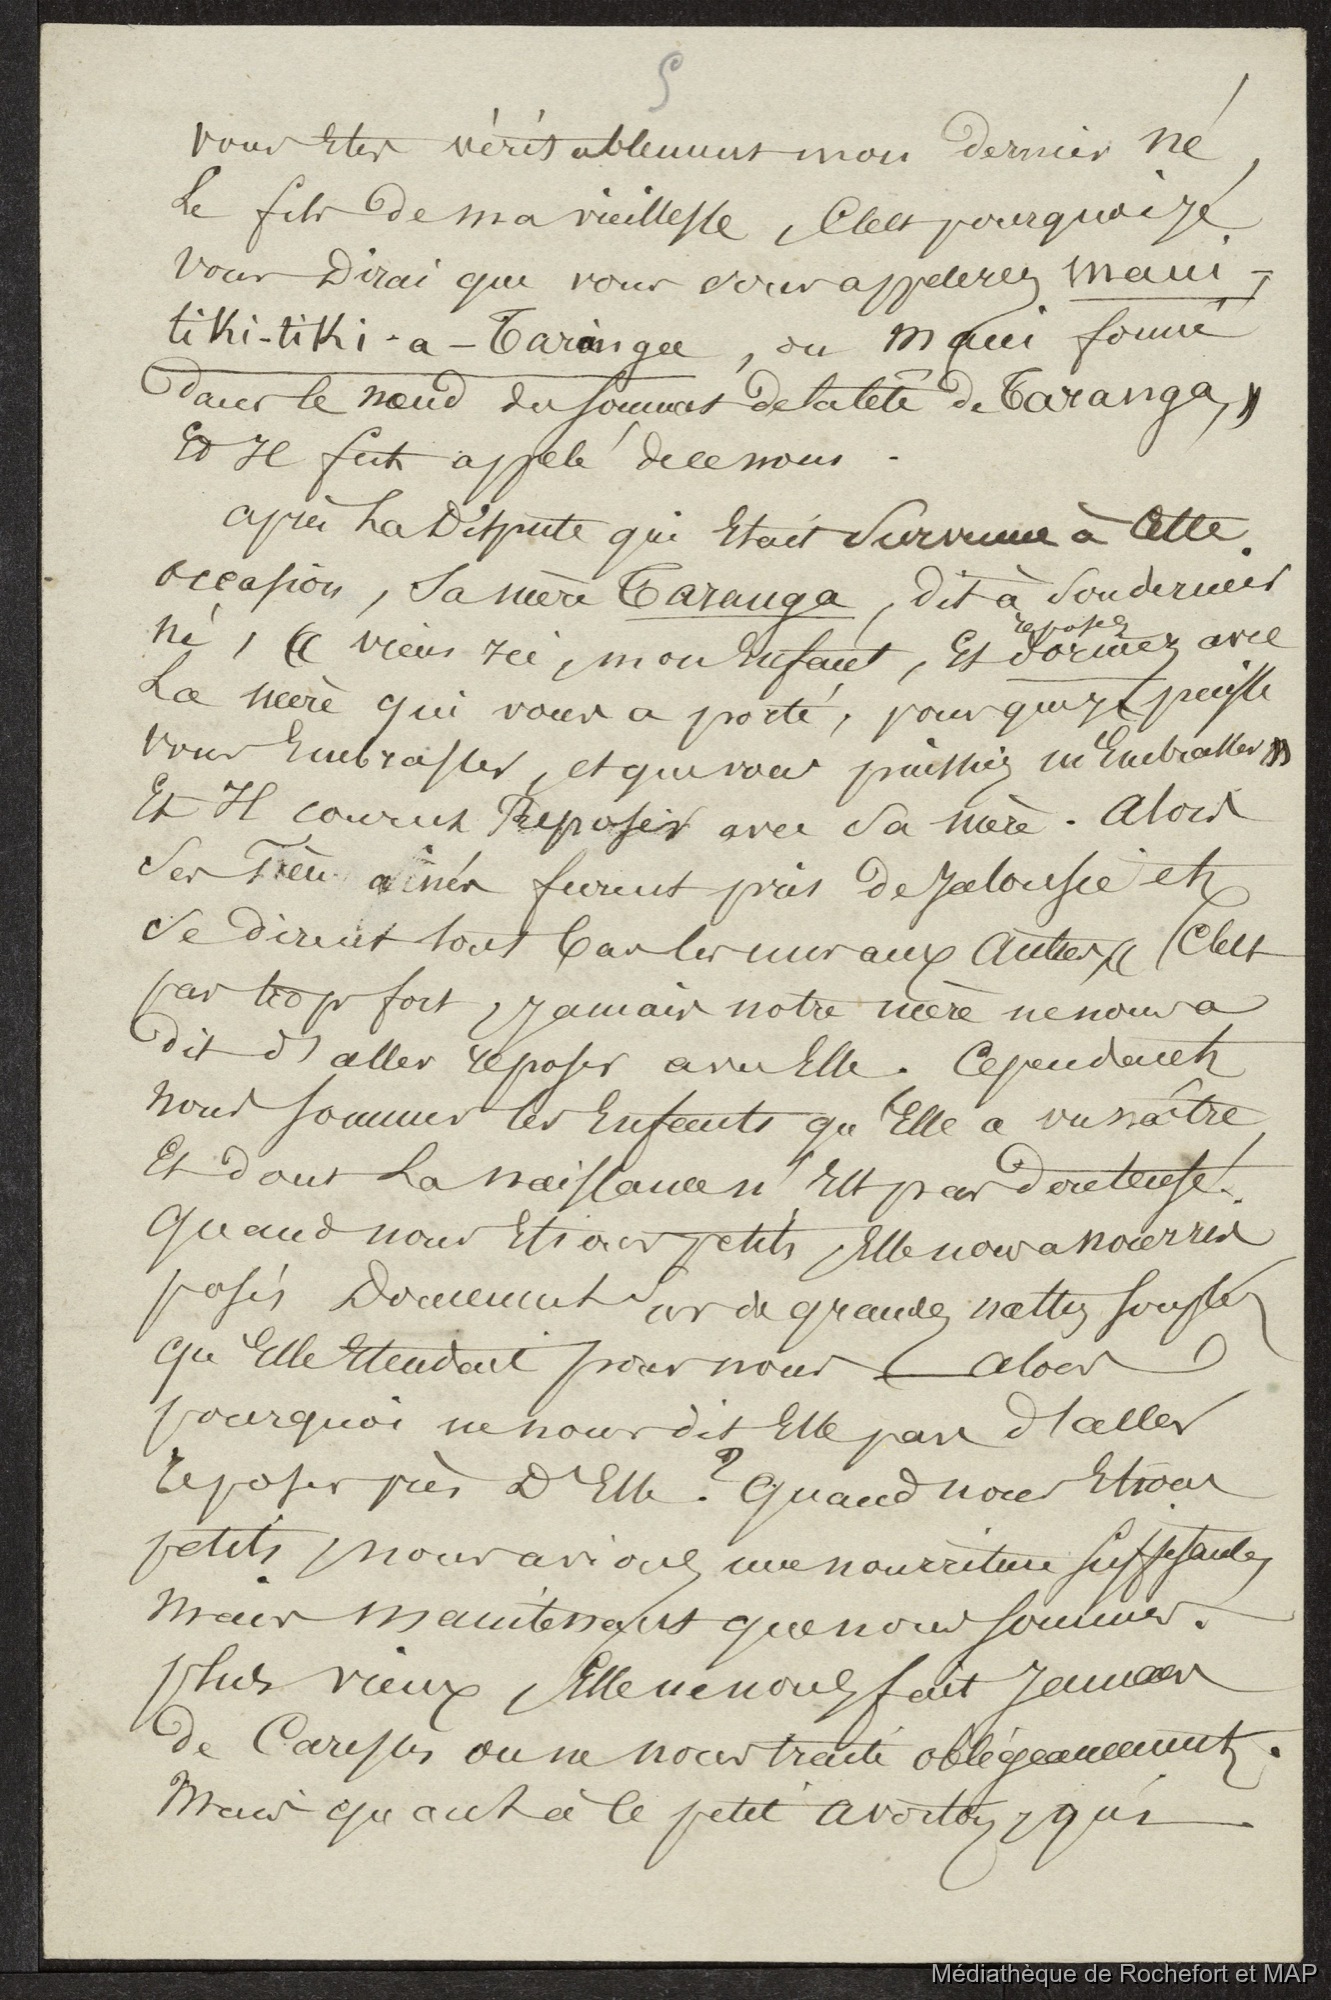 5
vous Etes véritablement mon dernier né,
Le fils de ma vieillesse, C'est pourquoi Je
vous Dirai que vous vous appelerez Maui-
tiki-tiki-a-Taranga, ou Maui formé
dans le nœud du sommet de la tête de Taranga, »
Et Il fut appelé de ce nom.
après La Dispute qui Etait Survenue à Cette
occasion, Sa mère Taranga, dit à Son dernier
né, « viens ici, mon Enfant, Et dormez avec
reposez
La mère qui vous a porté, pour que Je puisse
vous Embrasser, et que vous puissiez m'Embrasser »
Et Il courut Reposer avec Sa mère. Alors
Ses frères aînés furent pris de Jalousie et
Se dirent tout bas les uns aux Autres « C'est
par trop fort, Jamais notre mère ne nous a
dit d'aller reposer avec Elle. Cependant
nous sommes les Enfants qu'Elle a vu naître
Et dont La naissance n'Est pas douteuse.
Quand nous Etions petits, Elle nous a nourris
posés Doucement Sur de grandes nattes souples
qu'Elle Etendait pour nous — alors
pourquoi ne nous dit Elle pas d'aller
reposer près D'Elle ? Quand nous Etions
petits, nous avions une nourriture suffisante,
Mais Maintenant que nous sommes
plus vieux, Elle ne nous fait Jamais
de Caresses ou ne nous traite obligeamment.
Mais quant à ce petit avorton, qui
Médiathèque de Rochefort et MAP